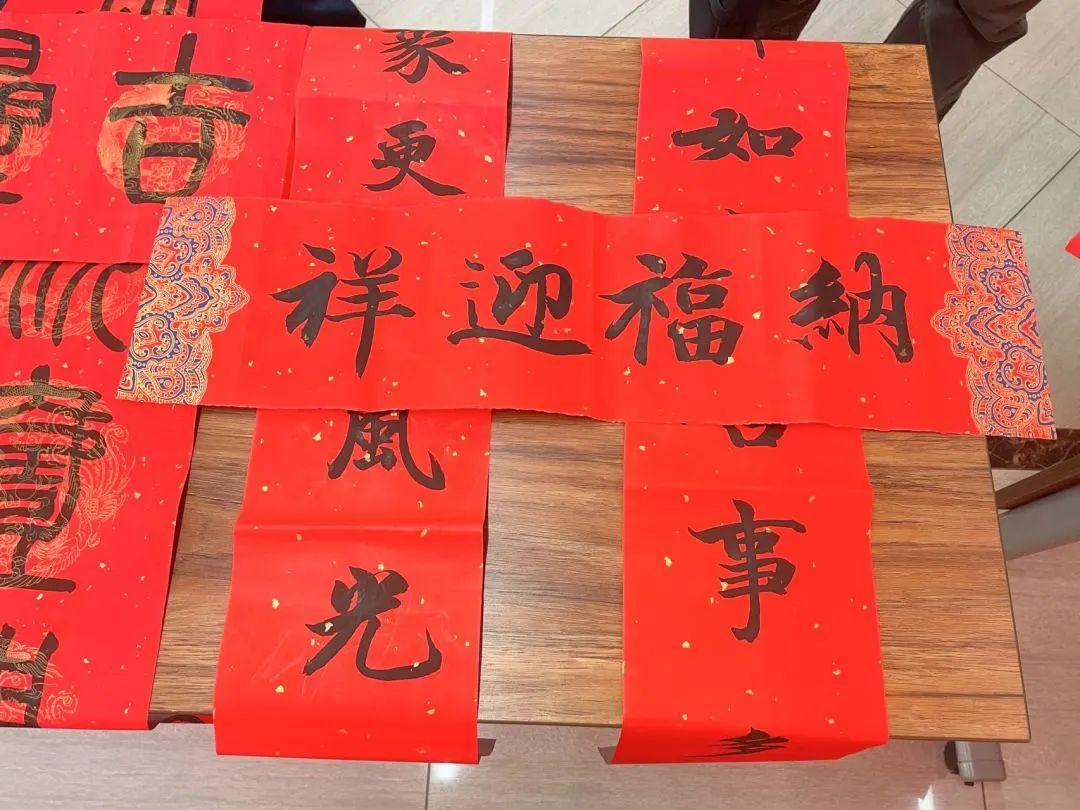 納福迎祥
如吉事
象更風光
吉